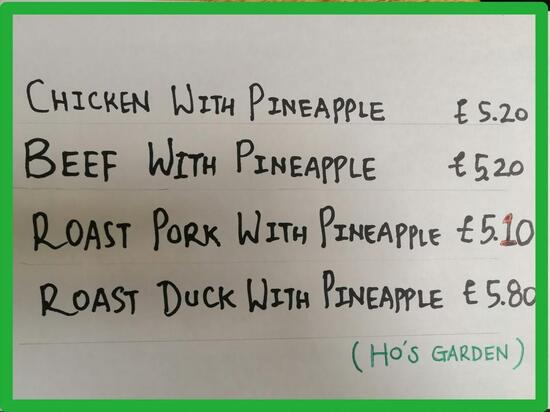 CHICKEN WITH PINEAPPLE £5.20
BEEF WITH PINEAPPLE £5.20
ROAST PORK WITH PINEAPPLE £5.10
ROAST DUCK WITH PINEAPPLE £5.80
(HO'S GARDEN)